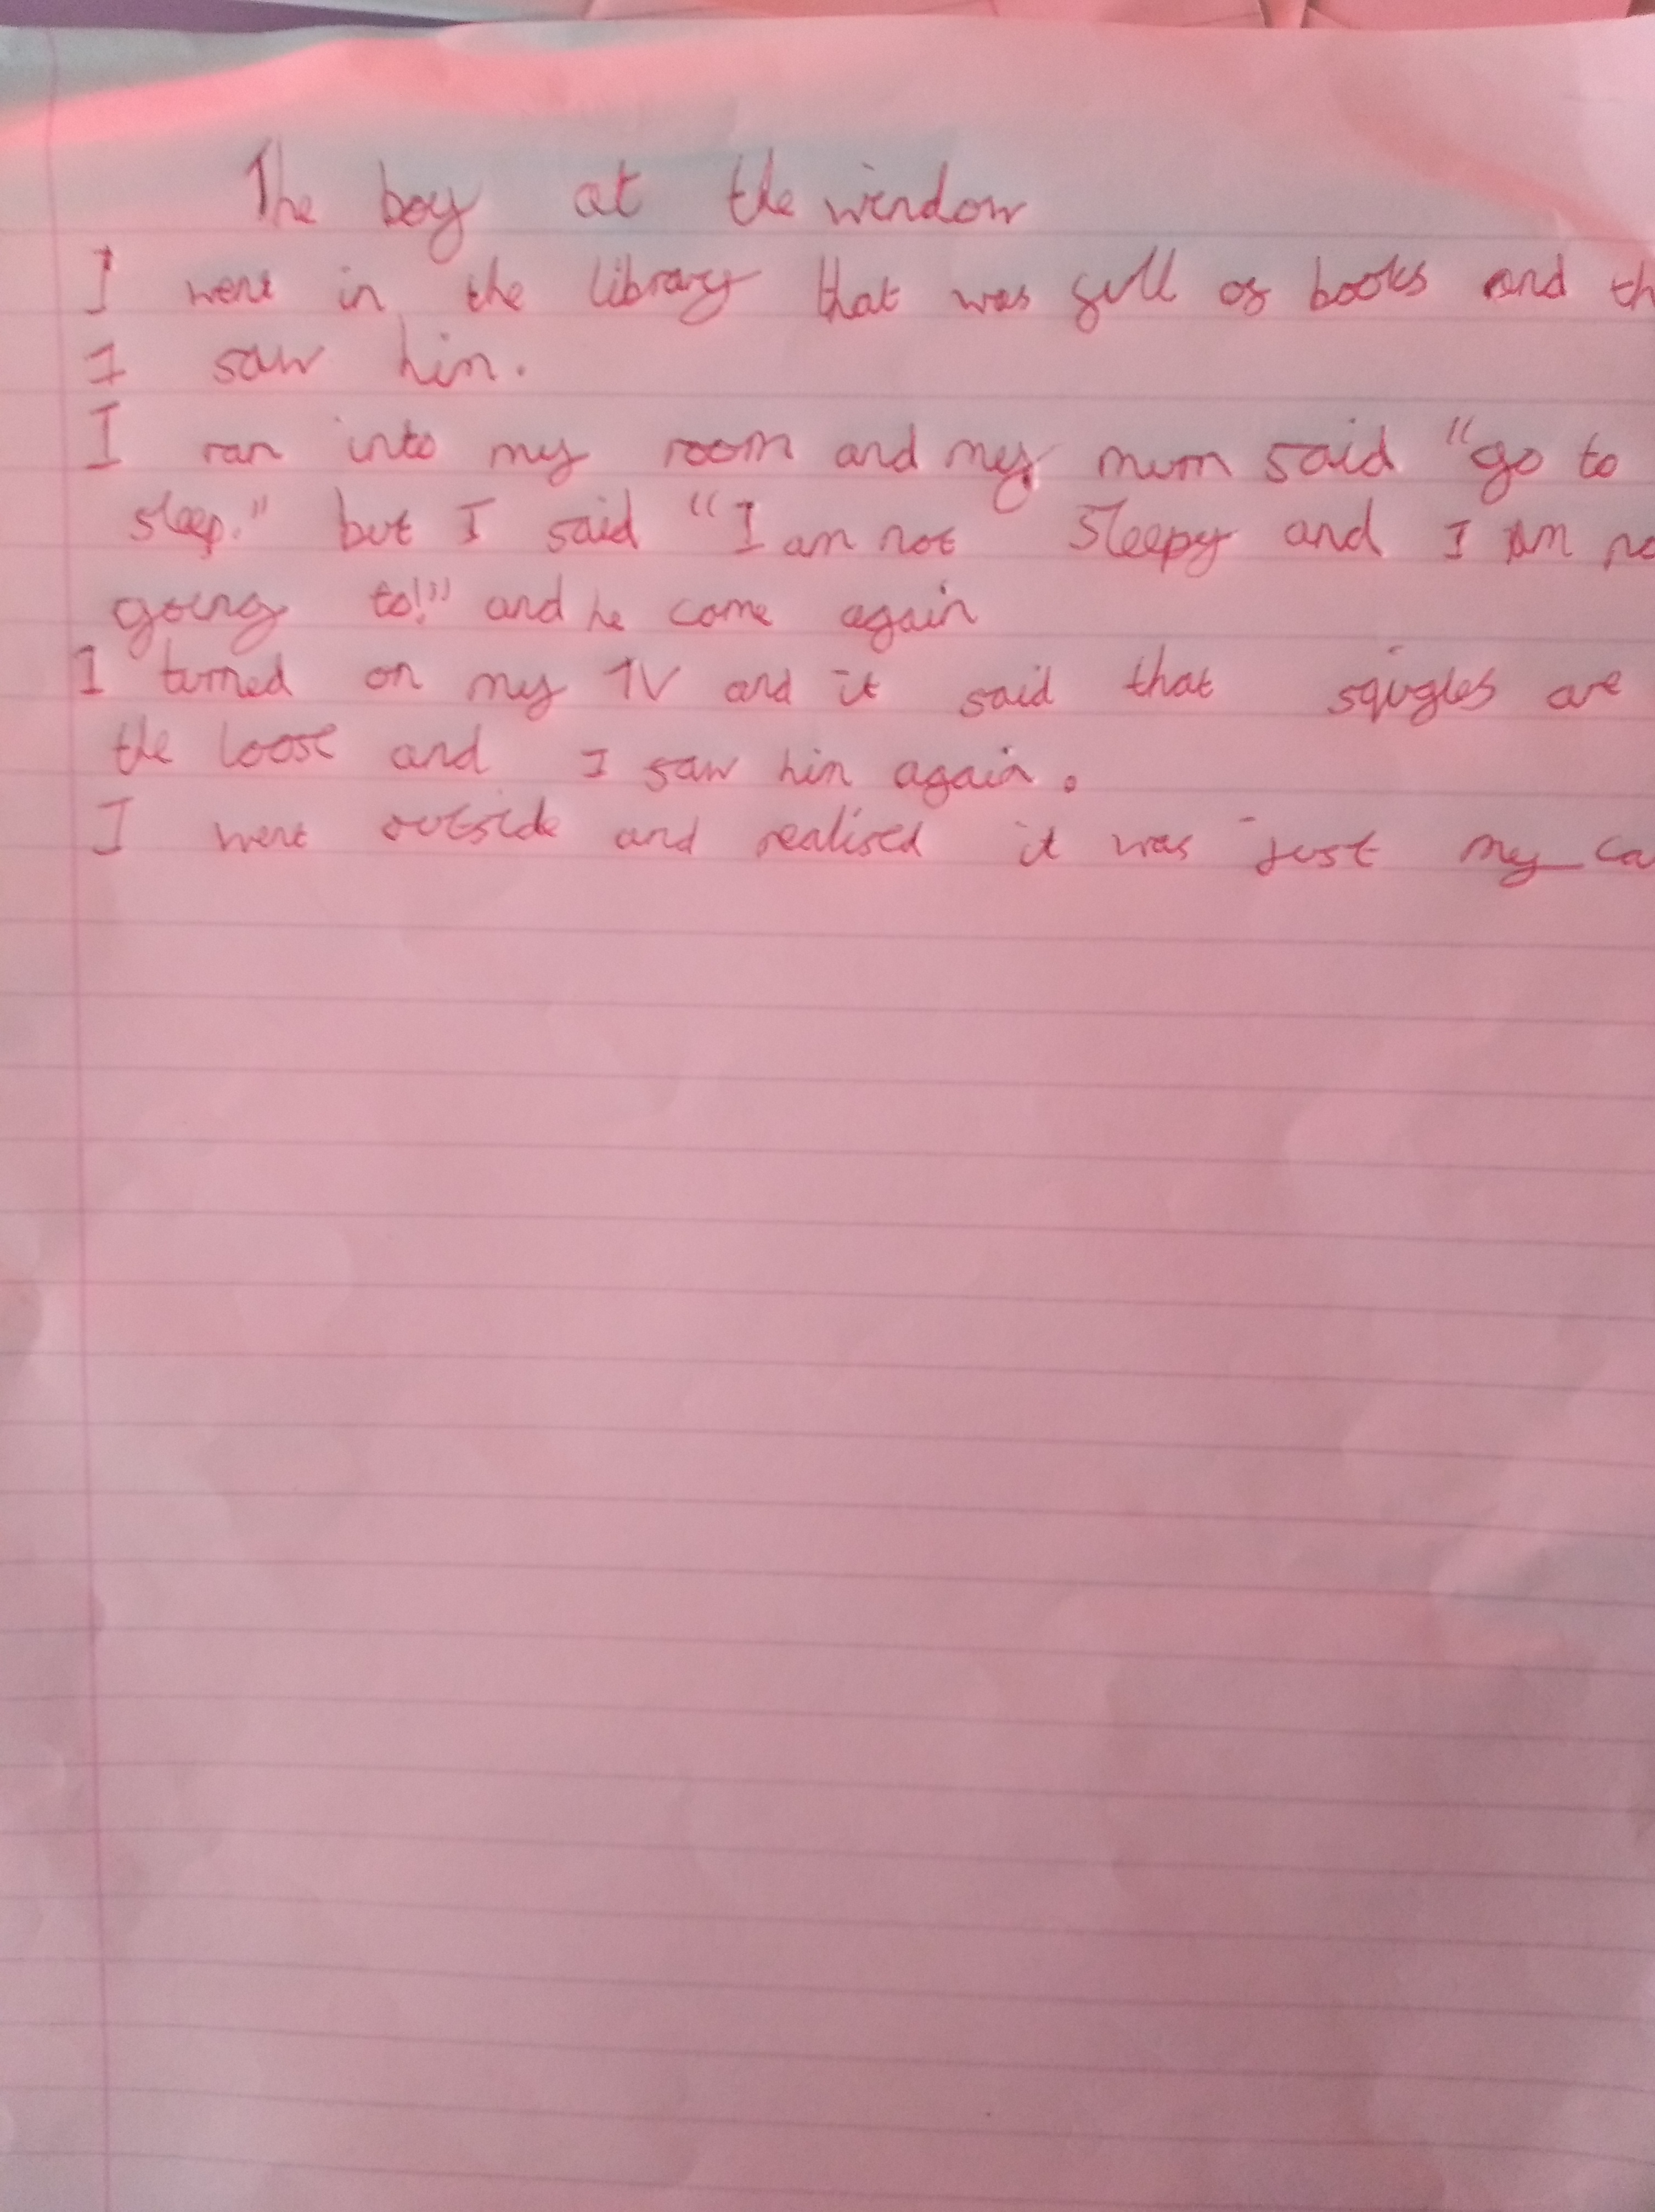 The boy at the window
I went in the library that was full of books and th
I saw him.
I ran into my room and my mum said "go to
sleep." but I said "I am not sleepy and I am no
going to!" and he came again
I turned on my TV and it said that squgles are
the loose and I saw him again.
I went outside and realised it was just my ca